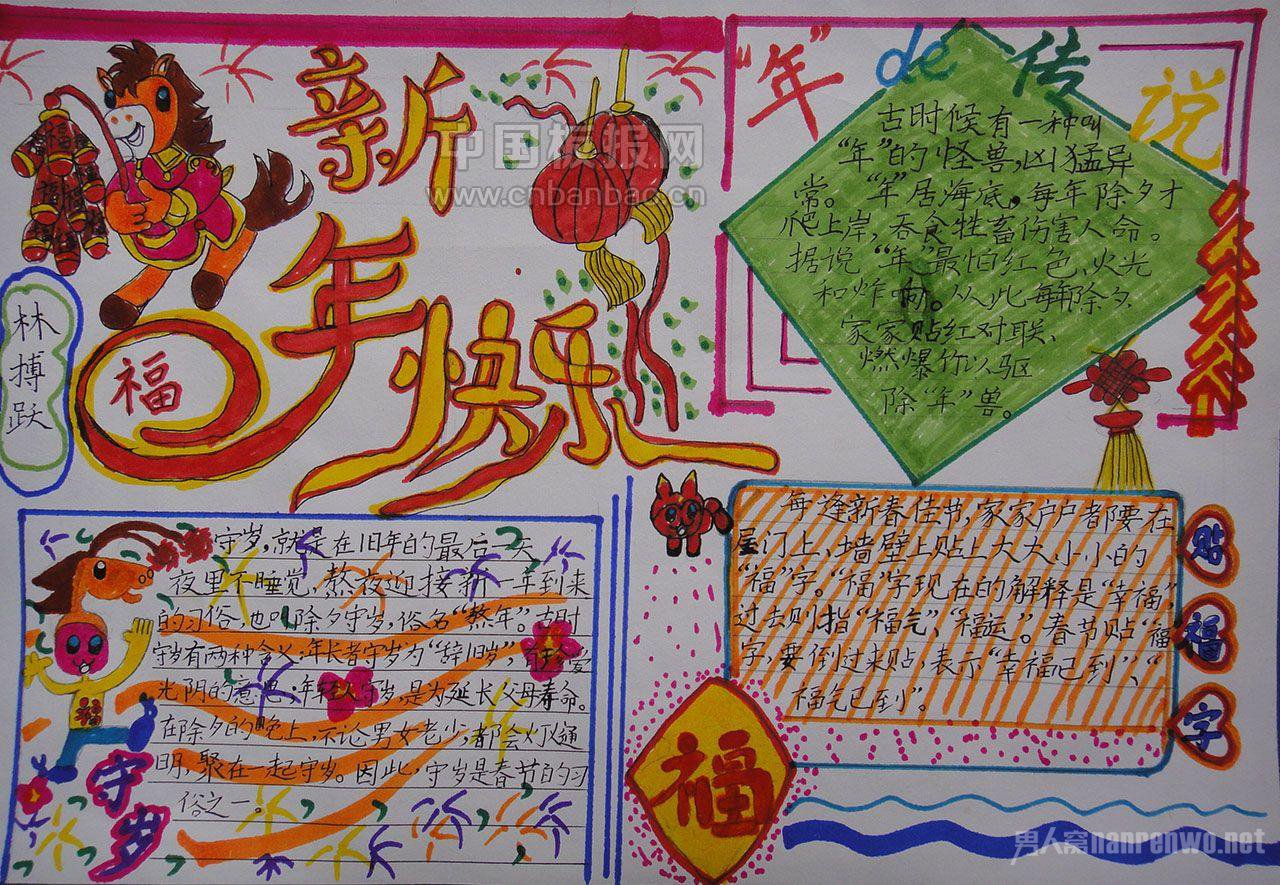 新年快乐
福
福
林搏跃
中国板报网
www.cnbanbao.cn
“年”de传说
古时候有一种叫
“年”的怪兽,凶猛异
常。“年”居海底,每年除夕才
爬上岸,吞食牲畜伤害人命。
据说“年”最怕红色、火光
和炸响。从此每年除夕
家家贴红对联、
燃爆竹以驱
除“年”兽。
守岁,就是在旧年的最后一天
夜里不睡觉,熬夜迎接新一年到来
的习俗,也叫除夕守岁,俗名“熬年”。古时
守岁有两种含义:年长者守岁为“辞旧岁”,有珍爱
光阴的意思;年轻人守岁,是为延长父母寿命。
在除夕的晚上,不论男女老少,都会灯火通
明,聚在一起守岁。因此,守岁是春节的习
俗之一。
福
守岁
每逢新春佳节,家家户户都要在
屋门上,墙壁上贴上大大小小的
“福”字。“福”字现在的解释是“幸福”,
过去则指“福气”、“福运”。春节贴“福”
字,要倒过来贴,表示“幸福已到”、“
福气已到”。
贴福字
福
男人窝nanrenwo.net